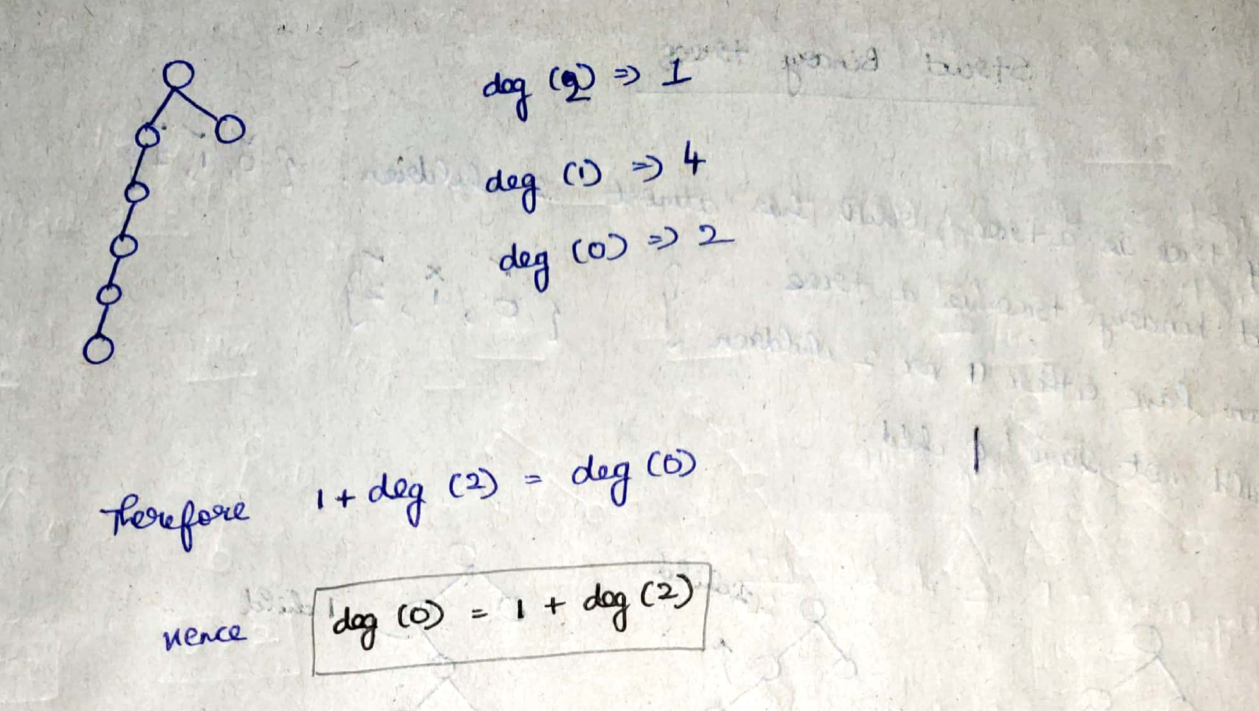 deg (2) ⇒ 1
deg (1) ⇒ 4
deg (0) ⇒ 2
Therefore 1 + deg (2) = deg (0)
Hence deg (0) = 1 + deg (2)